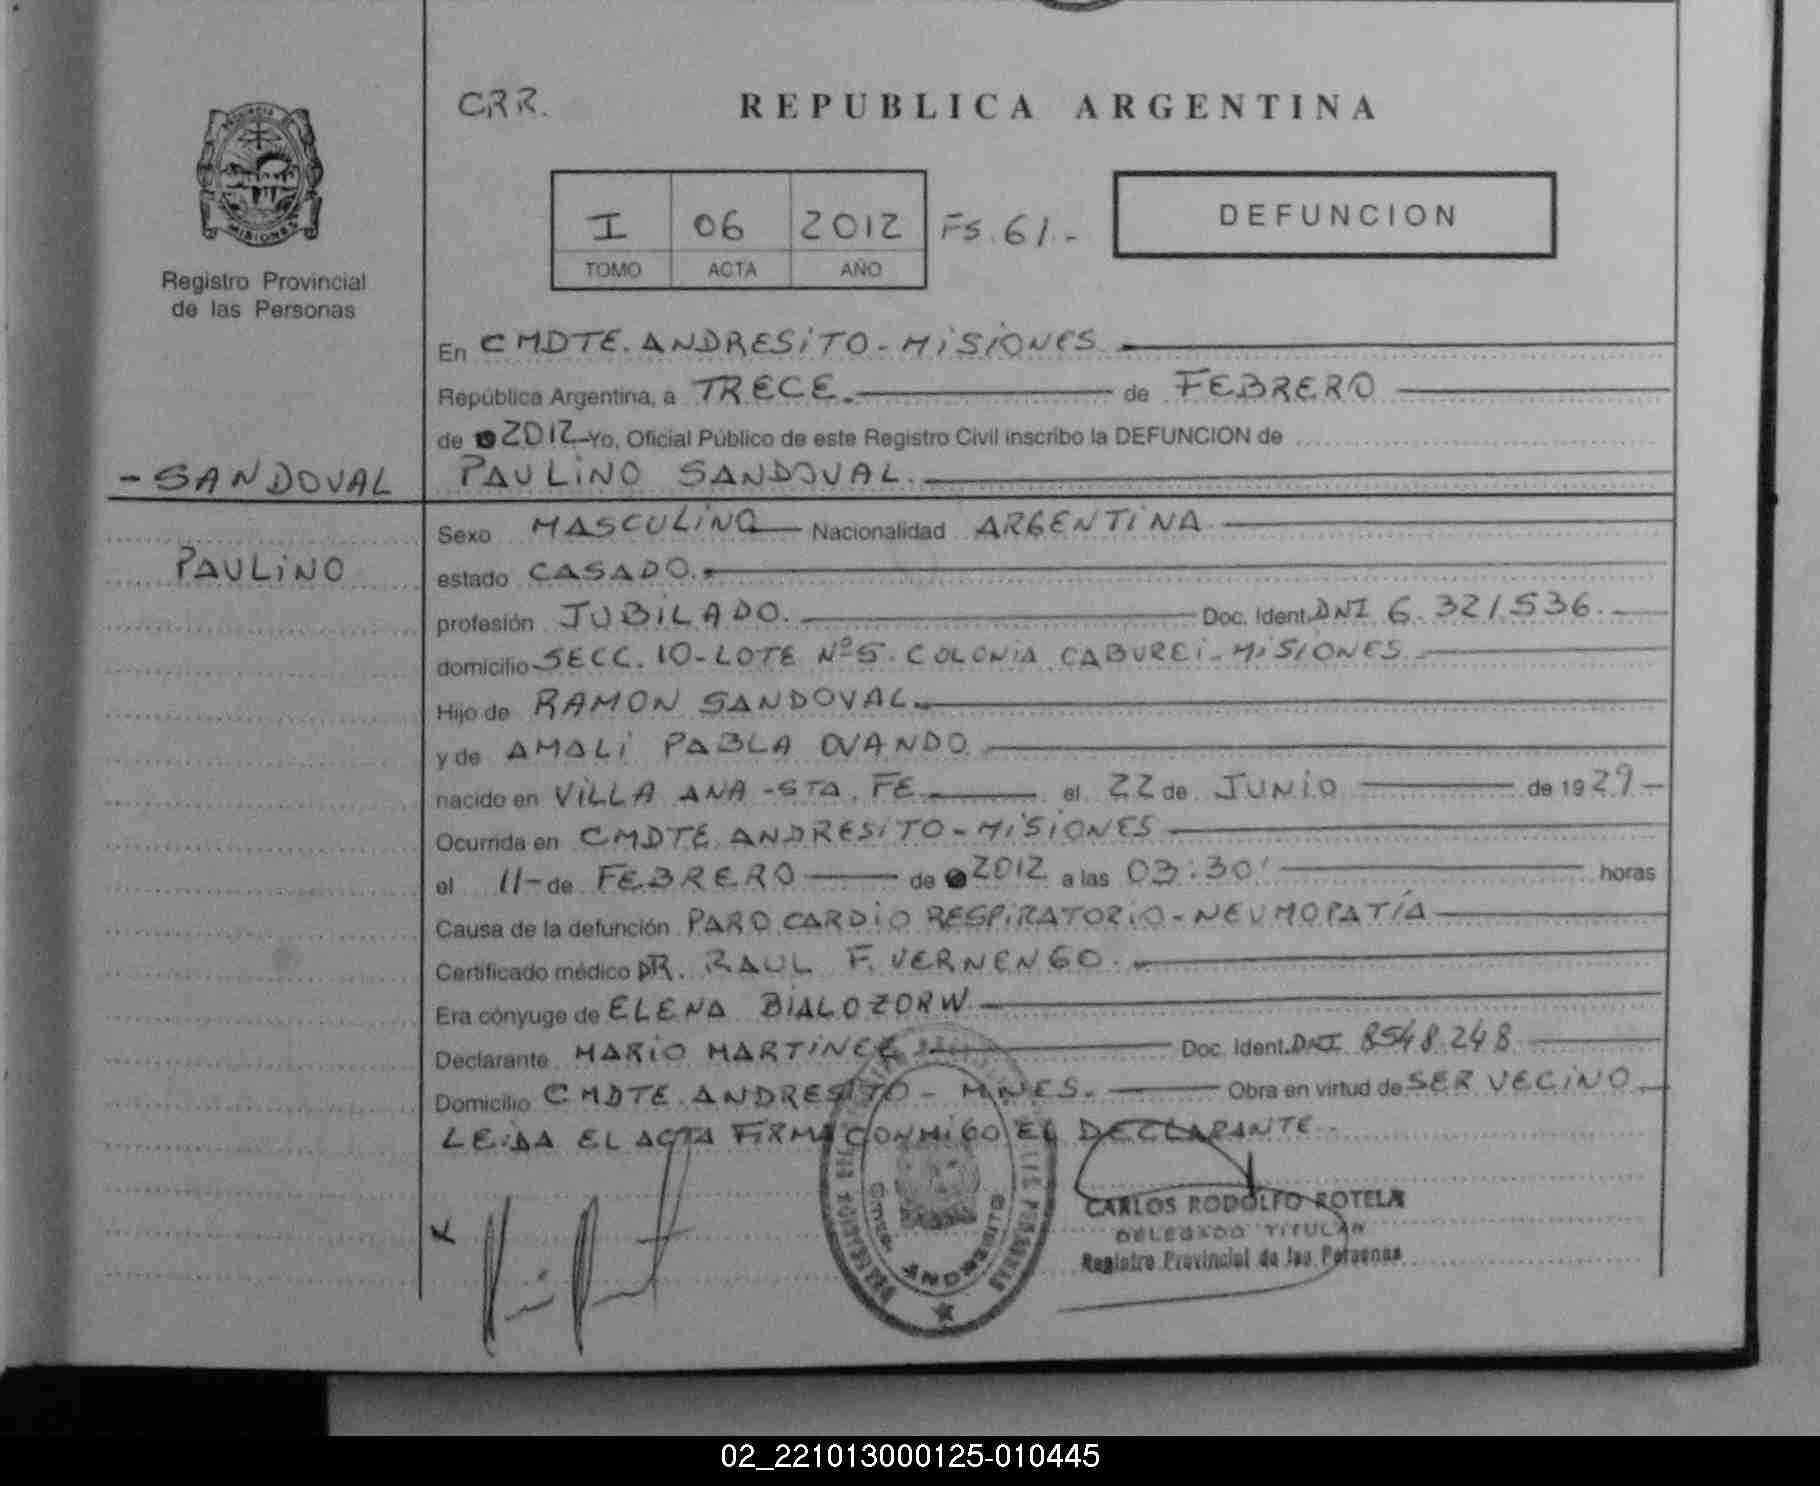 CRR.
REPUBLICA ARGENTINA
MISIONES
Registro Provincial
de las Personas
I 06 2012 FS. 61.-
TOMO ACTA AÑO
DEFUNCION
En CMDTE. ANDRESITO - MISIONES
República Argentina, a TRECE. de FEBRERO
de 2012 Yo, Oficial Público de este Registro Civil inscribo la DEFUNCION de
- SANDOVAL
PAULINO
PAULINO SANDOVAL.
Sexo MASCULINO Nacionalidad ARGENTINA
estado CASADO.
profesión JUBILADO. Doc. Ident. DNI 6.321.536.
domicilio SECC. 10 - LOTE Nº5. COLONIA CABUREI - MISIONES
Hijo de RAMON SANDOVAL.
y de AMALI PABLA OVANDO
nacido en VILLA ANA - STA. FE el 22 de JUNIO de 1929 -
Ocurrida en CMDTE. ANDRESITO - MISIONES
el 11 - de FEBRERO de 2012 a las 03:30' horas
Causa de la defunción PARO CARDIO RESPIRATORIO - NEUMOPATÍA
Certificado médico DR. RAUL F. VERNENGO.
Era cónyuge de ELENA BIALOZORW.
Declarante MARIO MARTINEZ Doc. Ident. DNI 8548.248
Domicilio CMDTE. ANDRESITO - MNES. Obra en virtud de SER VECINO
LEIDA EL ACTA FIRMA CONMIGO EL DECLARANTE.
X
ANDRESITO
CARLOS RODOLFO ROTELA
DELEGADO TITULAR
Registro Provincial de las Personas
02_221013000125-010445